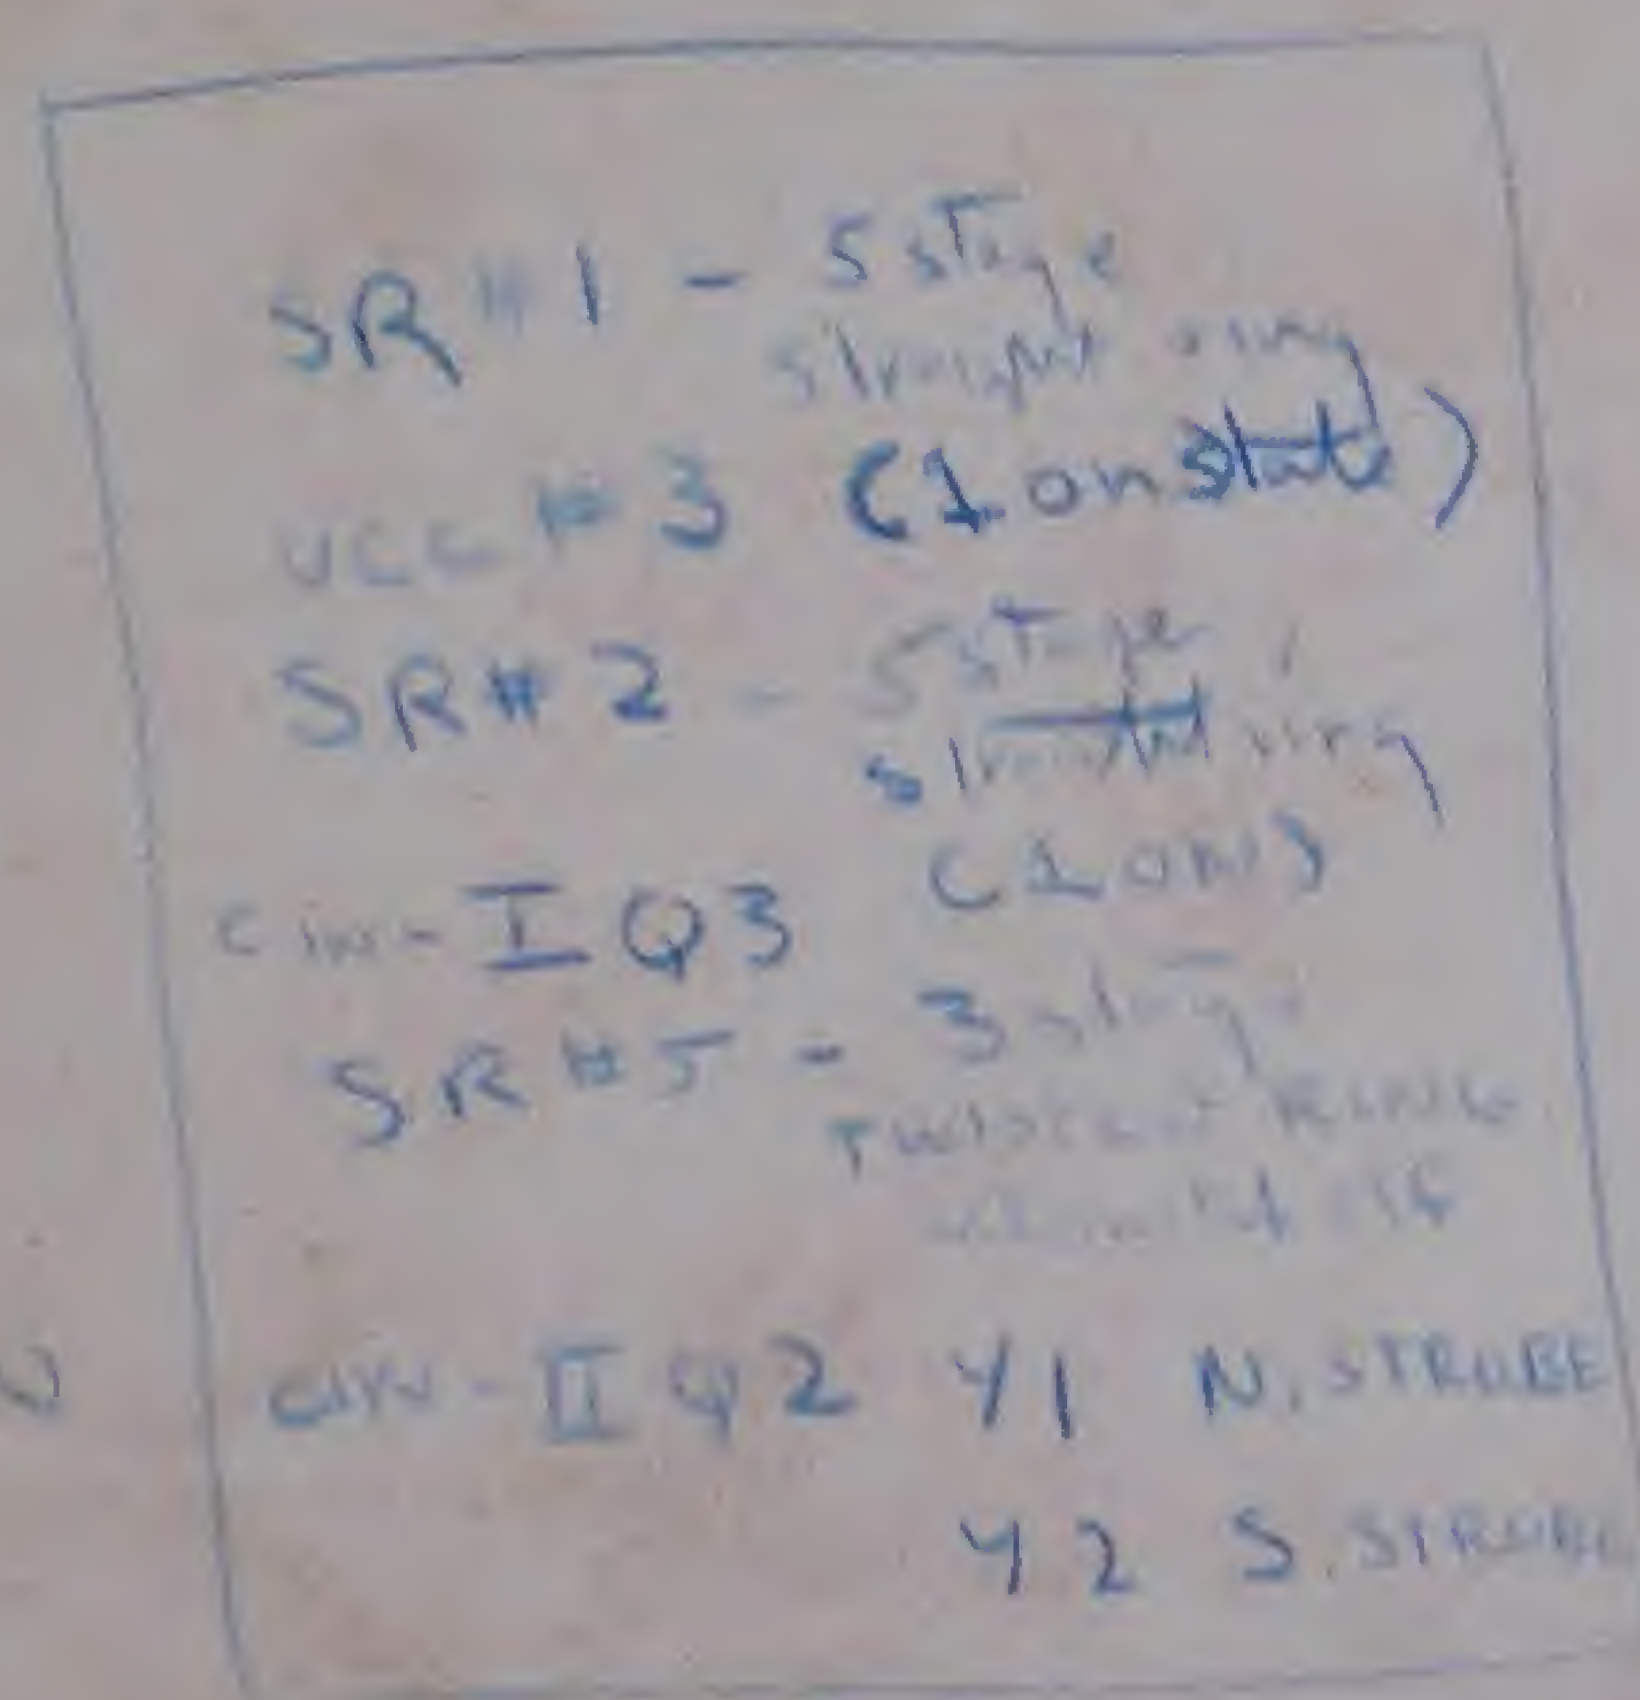 SR #1 - 5 stage
straight ring
UCC #3 (1 on state)
SR #2 - 5 stage
straight ring
(1 ON)
CIW - I Q3
SR #5 - 3 stage
CIW - II Q2 Y1 N. STROBE
Y2 S. STROBE